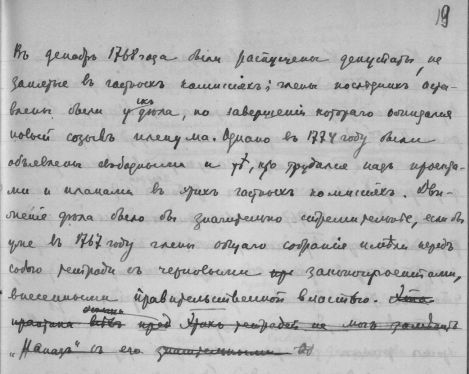 19
Въ декабрѣ 1768 года были распущены депутаты, не
занятые въ частныхъ комиссіяхъ; члены послѣднихъ оста-
влены были у ихъ дѣла, по завершеніи котораго ожидался
новый созывъ пленума. Однако въ 1774 году были
объявлены свободными и тѣ, кто трудился надъ проекта-
ми и планами въ этихъ частныхъ комиссіяхъ. Дви-
женіе дѣла было бы значительно стремительнѣе, если бъ
уже въ 1767 году члены общаго собранія имѣли передъ
собою тетради съ черновыми законопроектами,
внесенными правительственной властью. Эта
практика всѣхъ пред этихъ тетрадей не могъ замѣнить
„Наказъ" съ его значительными